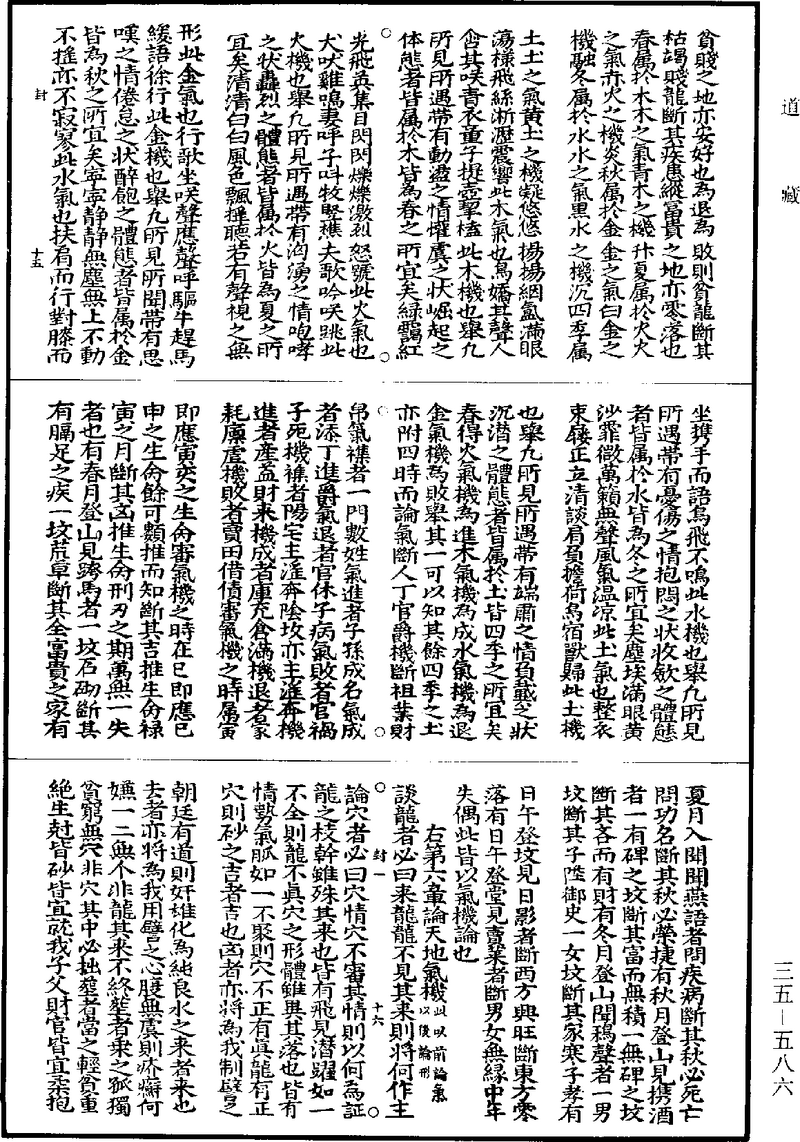 道藏
貧賤之地亦安好也為退為敗則貧龍斷其
枯竭賤龍斷其疾患縱富貴之地亦零落也
春屬於木木之氣青木之機升夏屬於火火
之氣赤火之機炎秋屬於金金之氣白金之
機融冬屬於水水之氣黑水之機沉四季屬
土土之氣黃土之機凝悠悠揚揚絪氳滿眼
蕩樣飛絲淅瀝震響此木氣也鳥嬌其聲人
含其咲青衣童子提壺挈榼此木機也舉凡
所見所遇帶有動盪之情懽虞之狀崛起之
体態者皆屬於木皆為春之所宜矣綠靄紅
光飛英集目閃閃爍爍激烈怒號此火氣也
犬吠雞鳴妻呼子呌牧竪樵夫歌吟咲跳此
火機也舉凡所見所遇帶有洶湧之情咆哮
之狀轟烈之體態者皆屬於火皆為夏之所
宜矣清清白白風色飄揺聽若有聲視之無
形此金氣也行歌坐咲聲應聲呼驅牛趕馬
緩語徐行此金機也舉凡所見所聞帶有思
嘆之情倦怠之狀醉飽之體態者皆屬於金
皆為秋之所宜矣寧寧静静無塵無上不動
不揺亦不寂寥此水氣也扶肩而行對膝而
封 十五
坐携手而語鳥飛不鳴此水機也舉凡所見
所遇帶有憂傷之情抱悶之狀收斂之體態
者皆屬於水皆為冬之所宜矣塵埃滿眼黃
沙霏微萬籟無聲風氣温凉此土氣也整衣
束髮正立清談肩負擔荷鳥宿獸歸此土機
也舉凡所見所遇帶有端肅之情負載之狀
沉潜之體態者皆屬於土皆四季之所宜矣
春得火氣機為進木氣機為成水氣機為退
金氣機為敗舉其一可以知其餘四季之土
亦附四時而論氣斷人丁官爵機斷祖業財
帛氣襍者一門數姓氣進者子孫成名氣成
者添丁進爵氣退者官休子病氣敗者官禍
子死機襍者陽宅主淫奔陰坟亦主淫奔機
進者產益財来機成者庫充倉滿機退者家
耗廩虚機敗者賣田借債審氣機之時屬寅
即應寅亥之生命審氣機之時在巳即應巳
申之生命餘可類推而知斷其吉推生命禄
寅之月斷其凶推生命刑刃之期萬無一失
者也有春月登山見跨馬者一坟石砌斷其
有腷足之疾一坟荒草斷其全富貴之家有
夏月入閫聞燕語者問疾病斷其秋必死亡
問功名斷其秋必榮捷有秋月登山見携酒
者一有碑之坟斷其富而無積一無碑之坟
斷其吝而有財有冬月登山聞鴉聲者一男
坟斷其子陞御史一女坟斷其家寒子孝有
日午登坟見日影者斷西方興旺斷東方零
落有日午登堂見賣菜者斷男女無緣中年
失偶此皆以氣機論也
右第六章論天地氣機此以前論氣以後論形
談龍者必曰来龍龍不見其来則將何作主
封一 十六
論穴者必曰穴情穴不審其情則以何為証
龍之枝幹雖殊其来也皆有飛見潜躍如一
不全則龍不真穴之形體雖異其落也皆有
情勢氣脈如一不聚則穴不正有真龍有正
穴則砂之吉者吉也凶者亦將為我制譬之
朝廷有道則奸雄化為純良水之来者来也
去者亦將為我用譬之心腹無虞則疥癬何
嫌一二無个非龍其来不終塟者乗之孤獨
貧窮無穴非穴其中必拙塟者當之輕貧重
絶生尅皆砂皆宜就我子父財官皆宜朶抱
三五—五八六